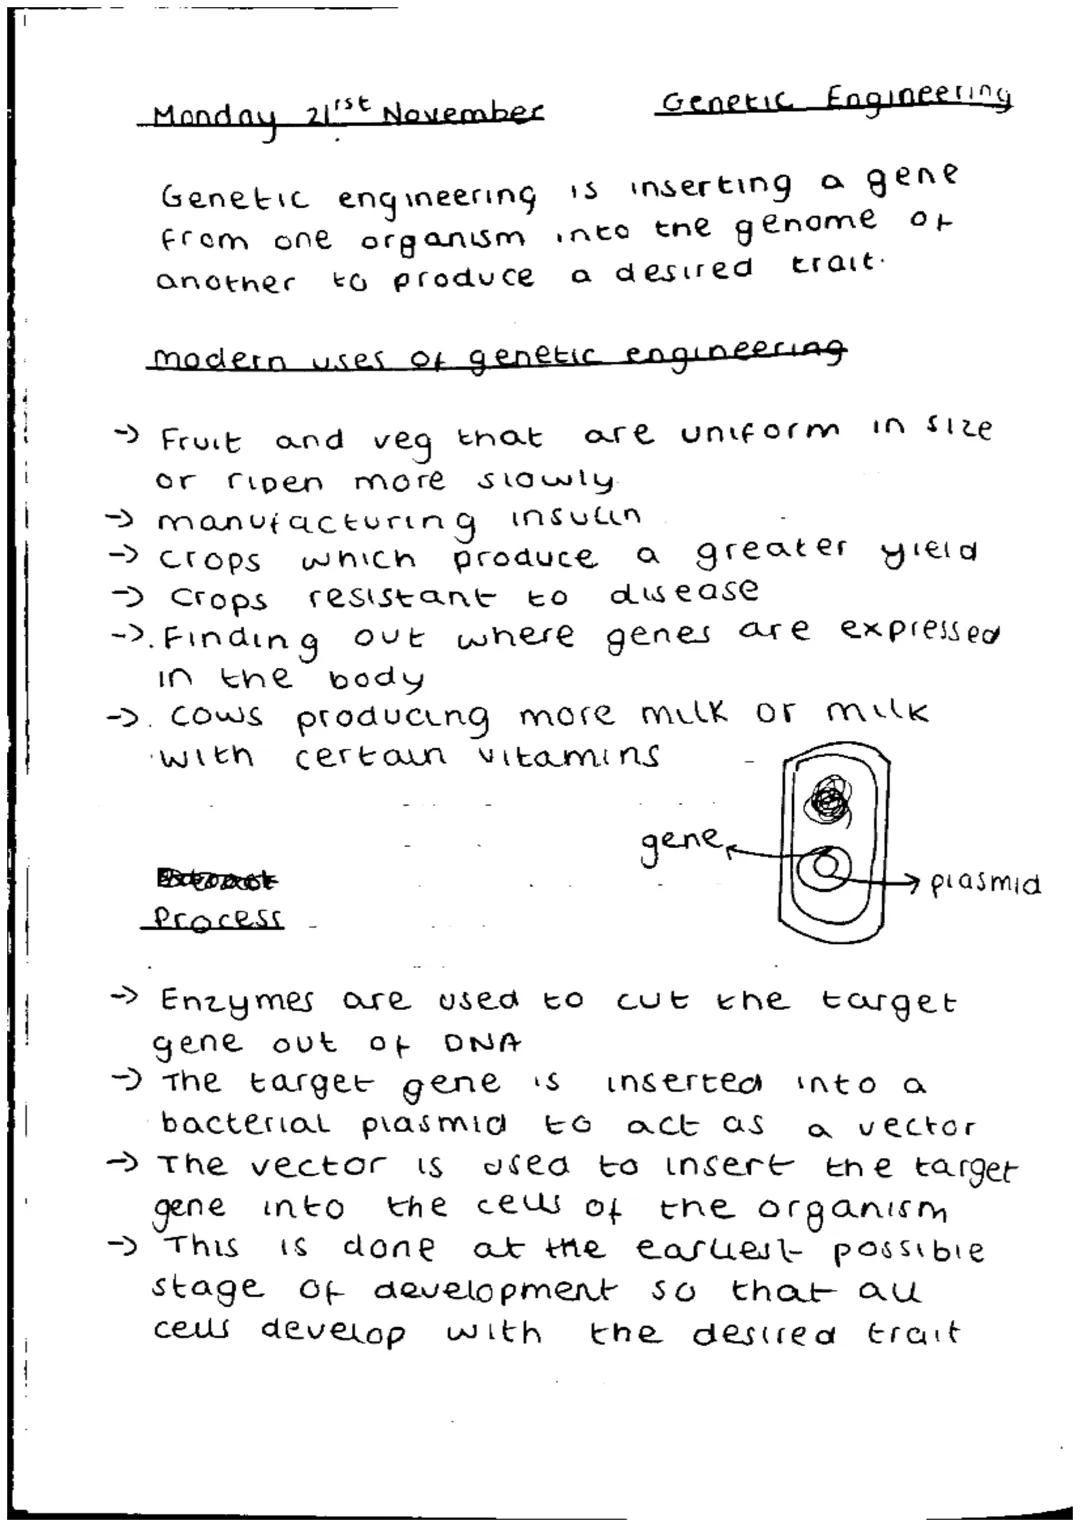 Monday 21rst November Genetic Engineering
Genetic engineering is inserting a gene
from one organism into the genome of
another to produce a desired trait.
Modern uses of genetic engineering
-> Fruit and veg that are uniform in size
or ripen more slowly
-> manufacturing insulin
-> crops which produce a greater yield
-> crops resistant to disease
->. Finding out where genes are expressed
in the body
->. cows producing more milk or milk
with certain vitamins
gene
plasmid
Extract
Process
-> Enzymes are used to cut the target
gene out of DNA
-> The target gene is inserted into a
bacterial plasmid to act as a vector
-> The vector is used to insert the target
gene into the cells of the organism
-> This is done at the earliest possible
stage of development so that all
cells develop with the desired trait